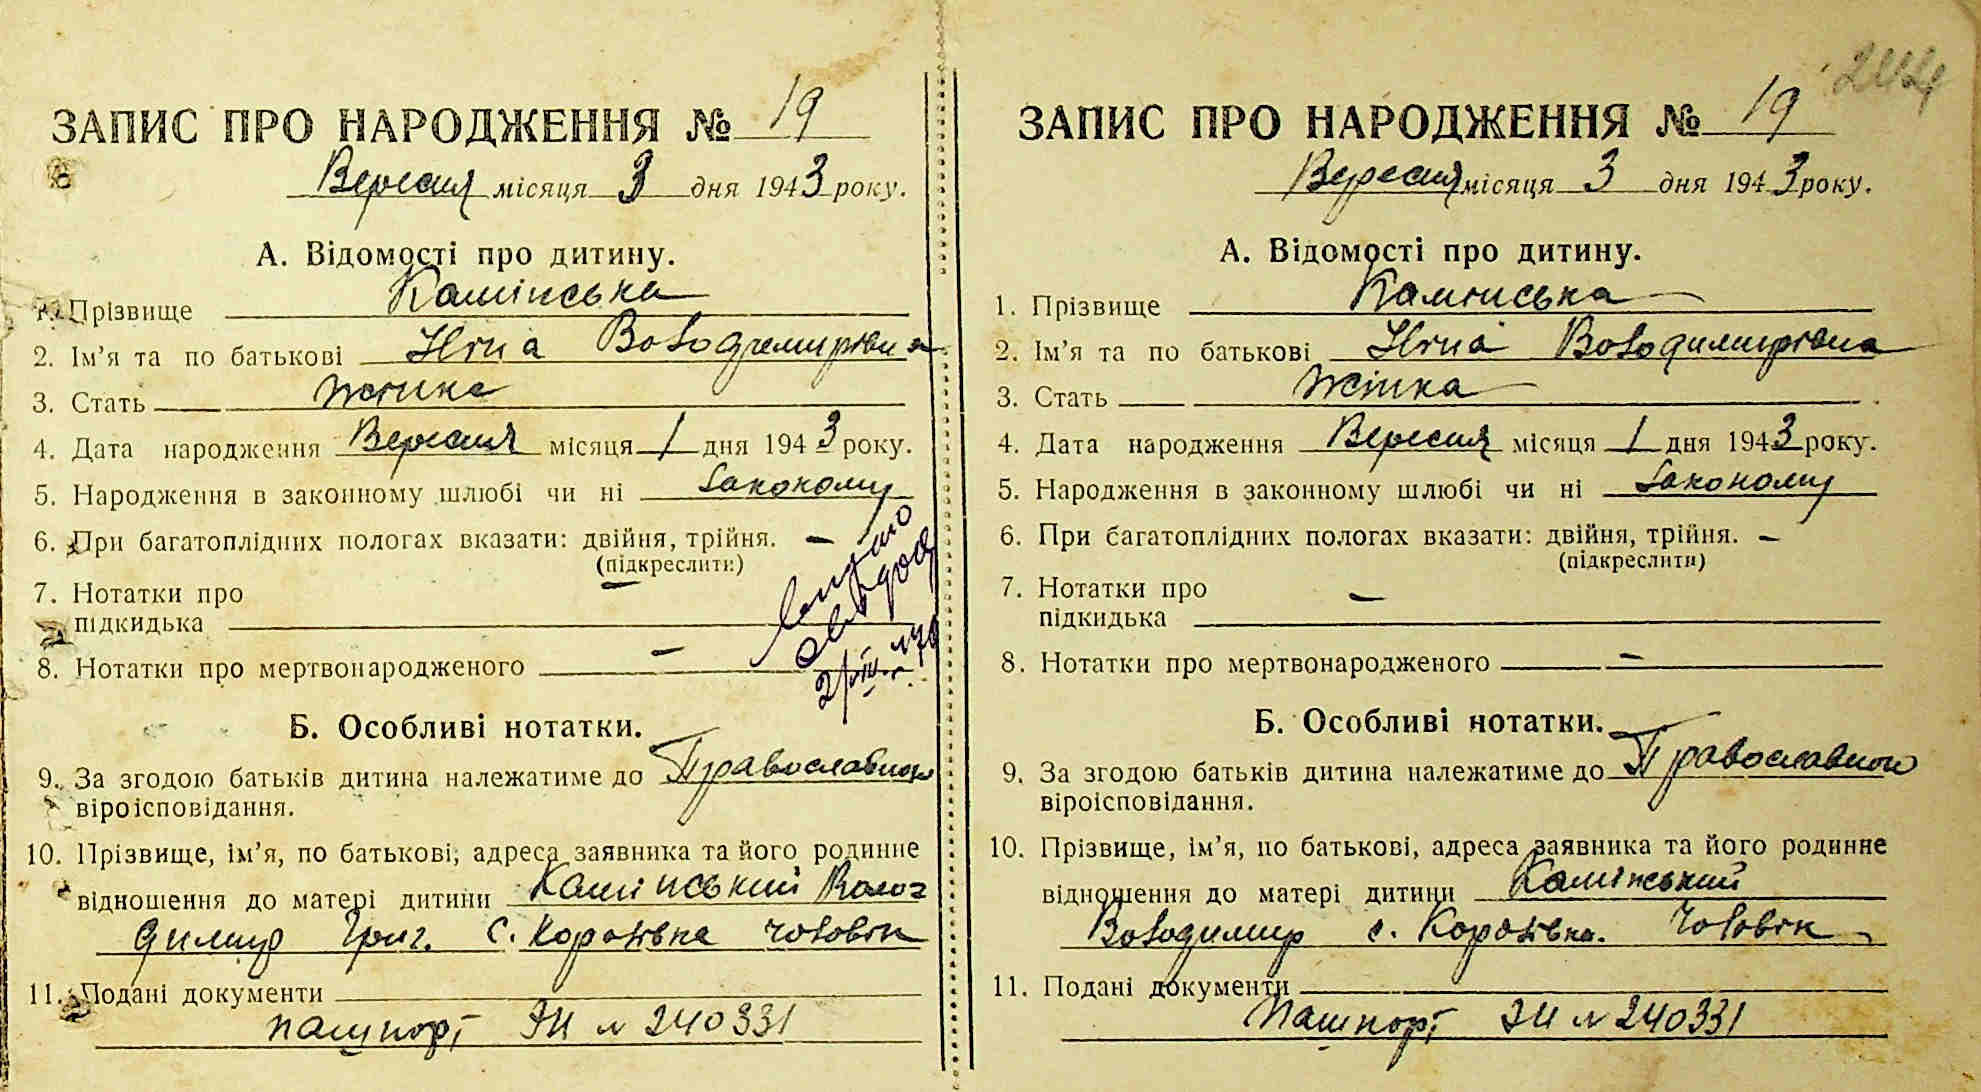 ЗАПИС ПРО НАРОДЖЕННЯ № 19
Вересня місяця 3 дня 1943 року.
А. Відомості про дитину.
1. Прізвище Камінська
2. Ім’я та по батькові Ніна Володимирівна
3. Стать жінка
4. Дата народження Вересня місяця 1 дня 1943 року.
5. Народження в законному шлюбі чи ні законому
6. При багатоплідних пологах вказати: двійня, трійня. –
(підкреслити)
7. Нотатки про –
підкидька
8. Нотатки про мертвонародженого –
Б. Особливі нотатки.
9. За згодою батьків дитина належатиме до Православного
віроісповідання.
10. Прізвище, ім’я, по батькові, адреса заявника та його родинне
відношення до матері дитини Камінський Воло
димир Григ. с. чоловік
11. Подані документи
пашпорт ЗИ № 240331
ЗАПИС ПРО НАРОДЖЕННЯ № 19
Вересня місяця 3 дня 1943 року.
А. Відомості про дитину.
1. Прізвище Камінська
2. Ім’я та по батькові Ніна Володимирівна
3. Стать жінка
4. Дата народження Вересня місяця 1 дня 1943 року.
5. Народження в законному шлюбі чи ні законому
6. При багатоплідних пологах вказати: двійня, трійня. –
(підкреслити)
7. Нотатки про –
підкидька
8. Нотатки про мертвонародженого –
Б. Особливі нотатки.
9. За згодою батьків дитина належатиме до Православного
віроісповідання.
10. Прізвище, ім’я, по батькові, адреса заявника та його родинне
відношення до матері дитини Камінський
Володимир с. чоловік
11. Подані документи
Пашпорт ЗИ № 240331